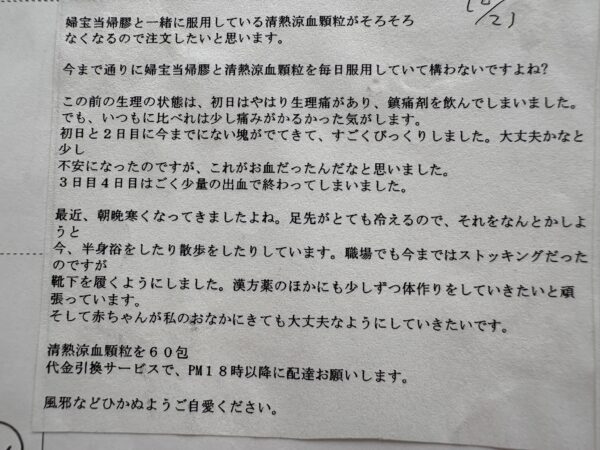 10/21
婦宝当帰膠と一緒に服用している清熱涼血顆粒がそろそろ
なくなるので注文したいと思います。
今まで通りに婦宝当帰膠と清熱涼血顆粒を毎日服用していて構わないですよね?
この前の生理の状態は、初日はやはり生理痛があり、鎮痛剤を飲んでしまいました。
でも、いつもに比べれは少し痛みがかるかった気がします。
初日と2日目に今までにない塊がでてきて、すごくびっくりしました。大丈夫かなと
少し
不安になったのですが、これがお血だったんだなと思いました。
3日目4日目はごく少量の出血で終わってしまいました。
最近、朝晩寒くなってきましたよね。足先がとても冷えるので、それをなんとかしよ
うと
今、半身浴をしたり散歩をしたりしています。職場でも今まではストッキングだった
のですが
靴下を履くようにしました。漢方薬のほかにも少しずつ体作りをしていきたいと頑
張っています。
そして赤ちゃんが私のおなかにきても大丈夫なようにしていきたいです。
清熱涼血顆粒を60包
代金引換サービスで、PM18時以降に配達お願いします。
風邪などひかぬようご自愛ください。